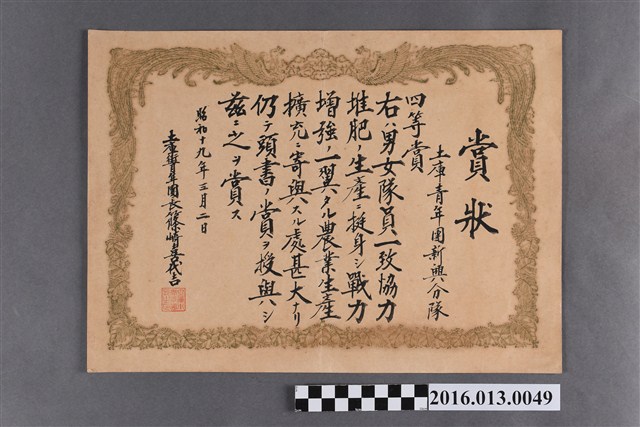 賞狀
土庫青年團新興分隊
四等賞
右ハ男女隊員一致協力
堆肥ノ生產ニ挺身シ戰力
增強ノ一翼タル農業生產ノ
擴充ニ寄與スル處甚大ナリ
仍テ頭書ノ賞ヲ授與シ
茲ニ之ヲ賞ス
昭和十九年三月二日
土庫青年團長篠崎喜代吉
2016.013.0049